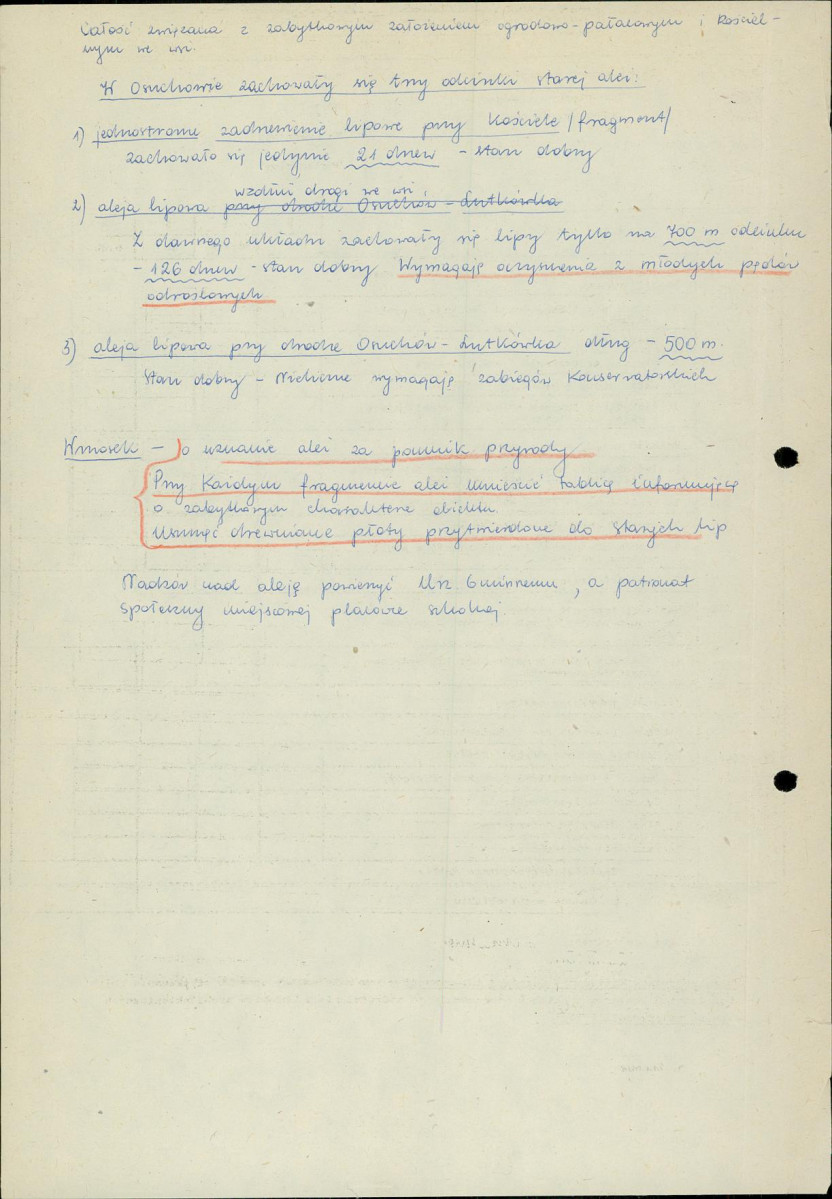 Całość związana z zabytkowym założeniem ogrodowo-pałacowym i kościel-
nym we wsi.
W Osuchowie zachowały się trzy odcinki starej alei:
1) jednostronne zadrzewienie lipowe przy Kościele /fragment/
zachowało się jedynie 21 drzew - stan dobry
wzdłuż drogi we wsi
2) aleja lipowa przy drodze Osuchów - Lutkówka
Z dawnego układu zachowały się lipy tylko na 700 m odcinku
- 126 drzew - stan dobry Wymagają oczyszczenia z młodych pędów
odroslowych
3) aleja lipowa przy drodze Osuchów - Lutkówka dług - 500 m.
Stan dobry - Nieliczne wymagają zabiegów Konserwatorskich
Wnioski - o uznanie alei za pomnik przyrody
Przy Każdym fragmencie alei umieścić tablicę informującą
o zabytkowym charakterze obiektu.
Usunąć drewniane płoty przytwierdzone do starych lip
Nadzór nad aleją powierzyć Urz Gminnemu, a patronat
społeczny miejscowej placówce szkolnej.